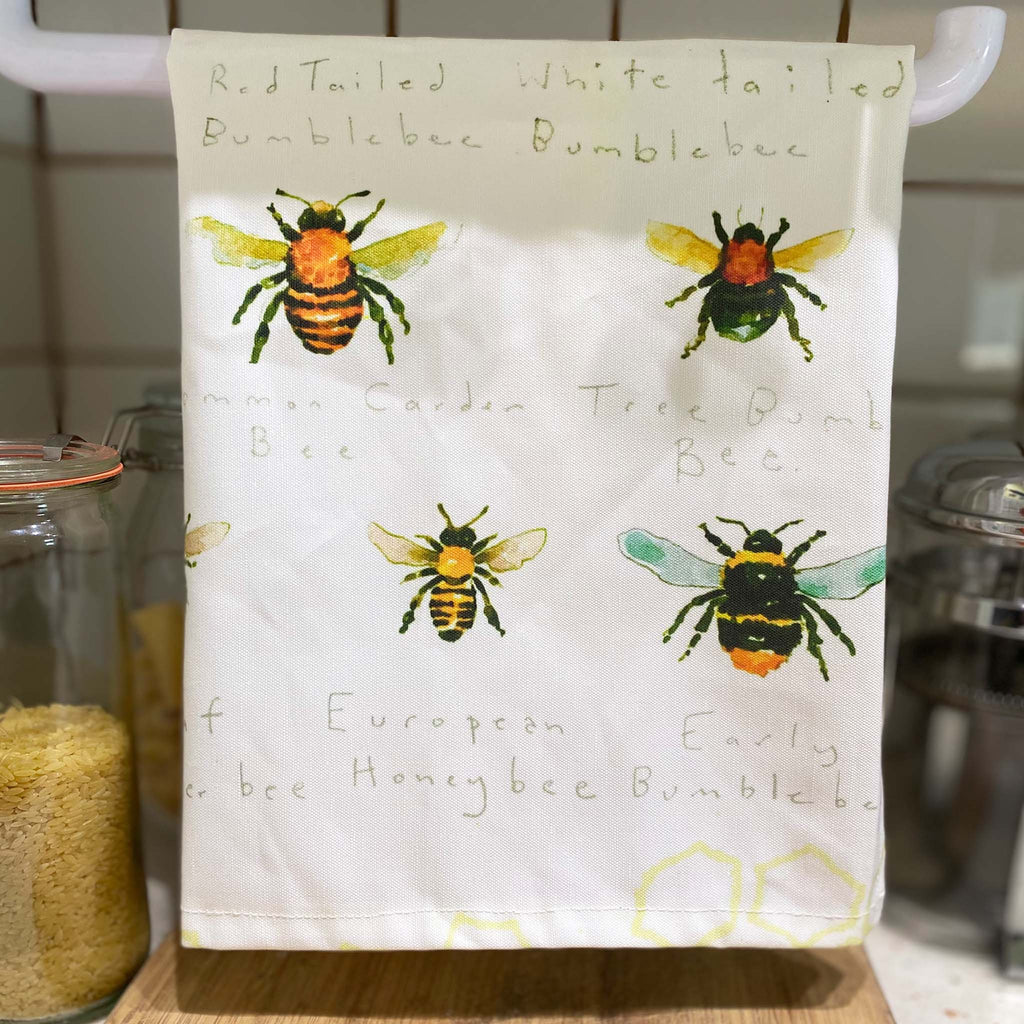 Red Tailed White tailed
Bumblebee Bumblebee
mmon Garden Tree Bumb
Bee Bee.
f European Early
er bee Honeybee Bumblebe